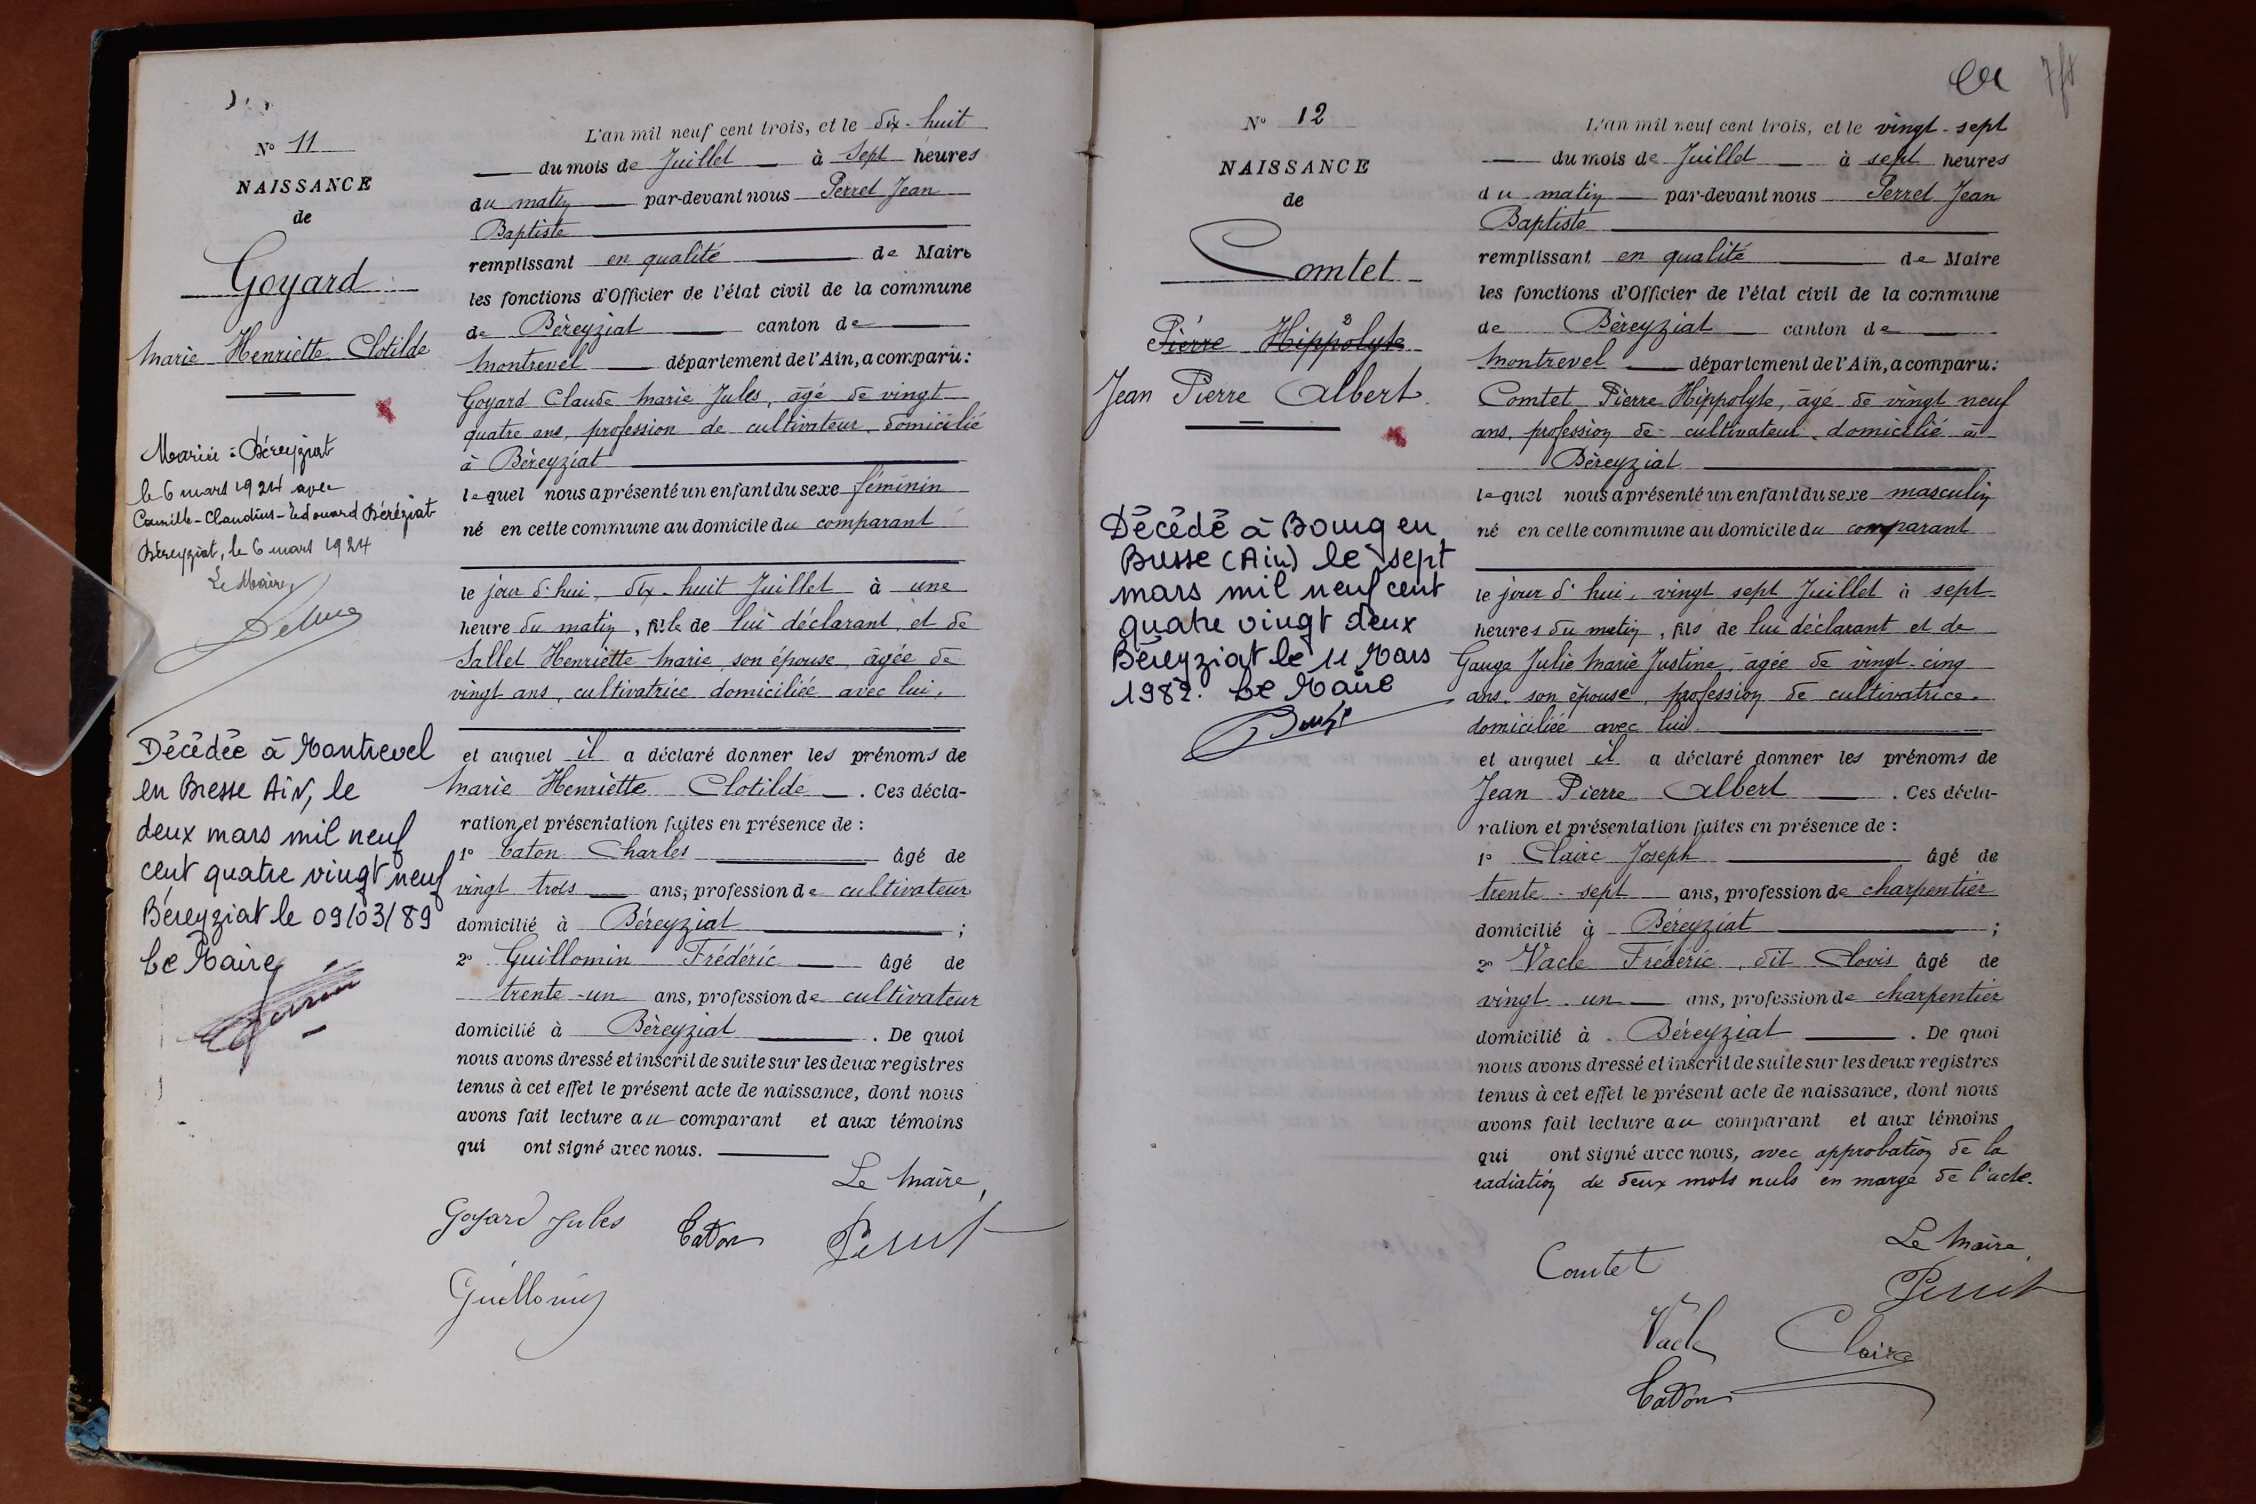 N° 11
NAISSANCE
de
Goyard
Marie Henriette Clotilde
Mariée à Béreyziat
le 6 mars 1924 avec
Camille-Claudius-Edouard Béréziat
Béreyziat, le 6 mars 1924
Le Maire,
Décédée à Montrevel
en Bresse Ain, le
deux mars mil neuf
cent quatre vingt neuf
Béreyziat le 09/03/89
Le Maire
L'an mil neuf cent trois, et le dix-huit
du mois de Juillet à sept heures
du matin par-devant nous Perret Jean
Baptiste
remplissant en qualité de Maire
les fonctions d'Officier de l'état civil de la commune
de Béreyziat canton de
Montrevel département de l'Ain, a comparu :
Goyard Claude Marie Jules, âgé de vingt
quatre ans, profession de cultivateur, domicilié
à Béreyziat
lequel nous a présenté un enfant du sexe féminin
né en cette commune au domicile du comparant
le jour d'hui, dix-huit Juillet à une
heure du matin, fille de lui déclarant, et de
Sallet Henriette Marie, son épouse, âgée de
vingt ans, cultivatrice domiciliée avec lui,
et auquel il a déclaré donner les prénoms de
Marie Henriette Clotilde . Ces décla-
ration et présentation faites en présence de :
1° Caton Charles âgé de
vingt trois ans, profession de cultivateur
domicilié à Béreyziat ;
2° Guillomin Frédéric âgé de
trente-un ans, profession de cultivateur
domicilié à Béreyziat . De quoi
nous avons dressé et inscrit de suite sur les deux registres
tenus à cet effet le présent acte de naissance, dont nous
avons fait lecture au comparant et aux témoins
qui ont signé avec nous.
Le Maire,
Goyard Jules Caton Perret
Guillomin
N° 12
NAISSANCE
de
Comtet
Pierre Hippolyte
Jean Pierre Albert
Décédé à Bourg en
Bresse (Ain) le sept
mars mil neuf cent
quatre vingt deux
Béreyziat le 11 Mars
1982. Le Maire
L'an mil neuf cent trois, et le vingt-sept
du mois de Juillet à sept heures
du matin par-devant nous Perret Jean
Baptiste
remplissant en qualité de Maire
les fonctions d'Officier de l'état civil de la commune
de Béreyziat canton de
Montrevel département de l'Ain, a comparu :
Comtet Pierre Hippolyte, âgé de vingt neuf
ans, profession de cultivateur, domicilié à
Béreyziat
lequel nous a présenté un enfant du sexe masculin
né en cette commune au domicile du comparant
le jour d'hui, vingt sept Juillet à sept
heures du matin, fils de lui déclarant et de
Gauge Julie Marie Justine, âgée de vingt-cinq
ans, son épouse, profession de cultivatrice,
domiciliée avec lui
et auquel il a déclaré donner les prénoms de
Jean Pierre Albert . Ces décla-
ration et présentation faites en présence de :
1° Claire Joseph âgé de
trente-sept ans, profession de charpentier
domicilié à Béreyziat ;
2° Vacle Frédéric, dit Clovis âgé de
vingt-un ans, profession de charpentier
domicilié à Béreyziat . De quoi
nous avons dressé et inscrit de suite sur les deux registres
tenus à cet effet le présent acte de naissance, dont nous
avons fait lecture au comparant et aux témoins
qui ont signé avec nous, avec approbation de la
radiation de deux mots nuls en marge de l'acte.
Le Maire,
Comtet Perret
Vacle Claire
Caton